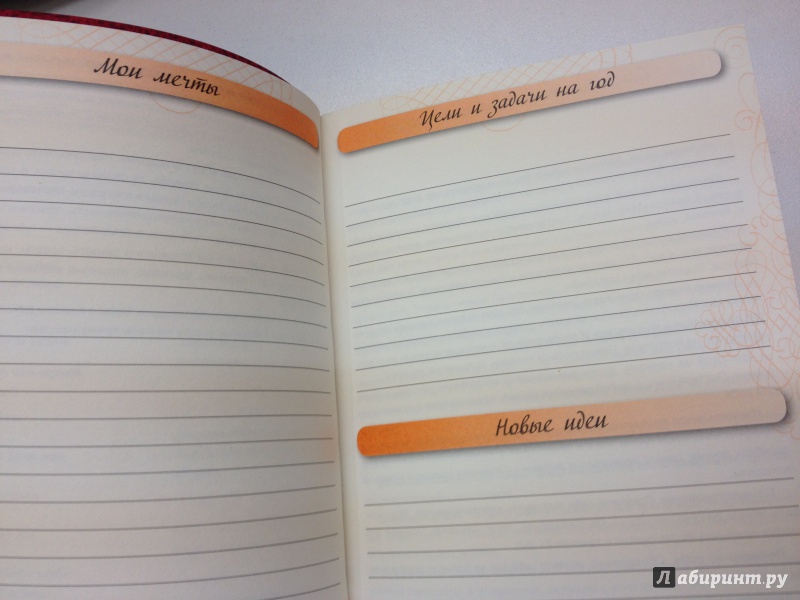 Мои мечты
Цели и задачи на год
Новые идеи
Лабиринт.ру